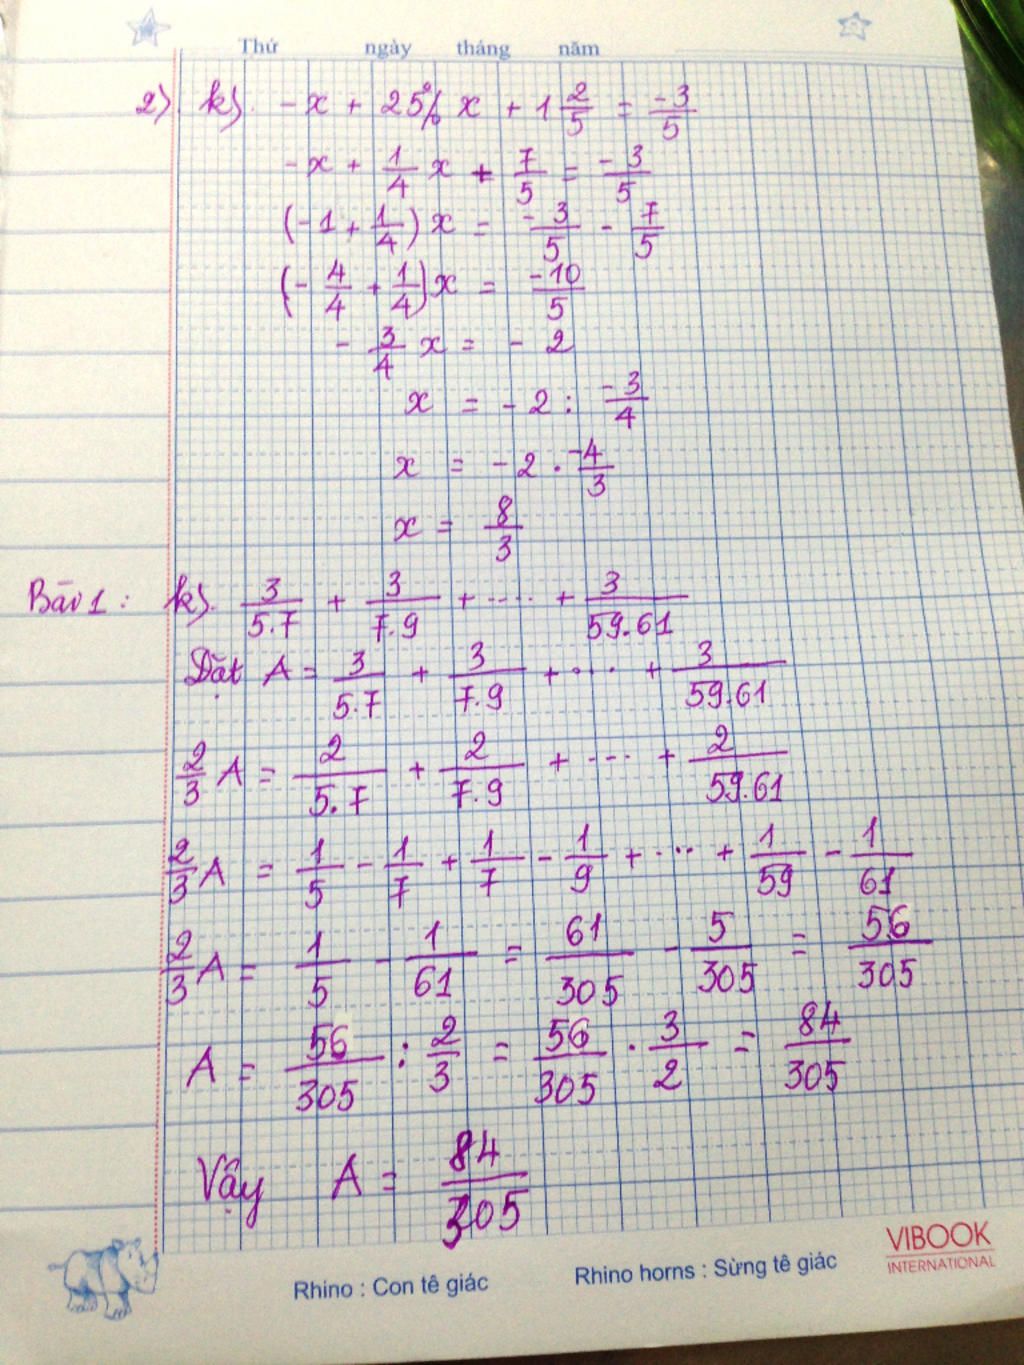 Thứ ngày tháng năm
2) k). -x + 25% x + 1 2/5 = -3/5
-x + 1/4 x + 7/5 = -3/5
(-1 + 1/4) x = -3/5 - 7/5
(-4/4 + 1/4) x = -10/5
-3/4 x = -2
x = -2 : -3/4
x = -2 . -4/3
x = 8/3
Bài 1 : k). 3/5.7 + 3/7.9 + ..... + 3/59.61
Đặt A = 3/5.7 + 3/7.9 + .... + 3/59.61
2/3 A = 2/5.7 + 2/7.9 + .... + 2/59.61
2/3 A = 1/5 - 1/7 + 1/7 - 1/9 + .... + 1/59 - 1/61
2/3 A = 1/5 - 1/61 = 61/305 - 5/305 = 56/305
A = 56/305 : 2/3 = 56/305 . 3/2 = 84/305
Vậy A = 84/305
VIBOOK
INTERNATIONAL
Rhino : Con tê giác Rhino horns : Sừng tê giác